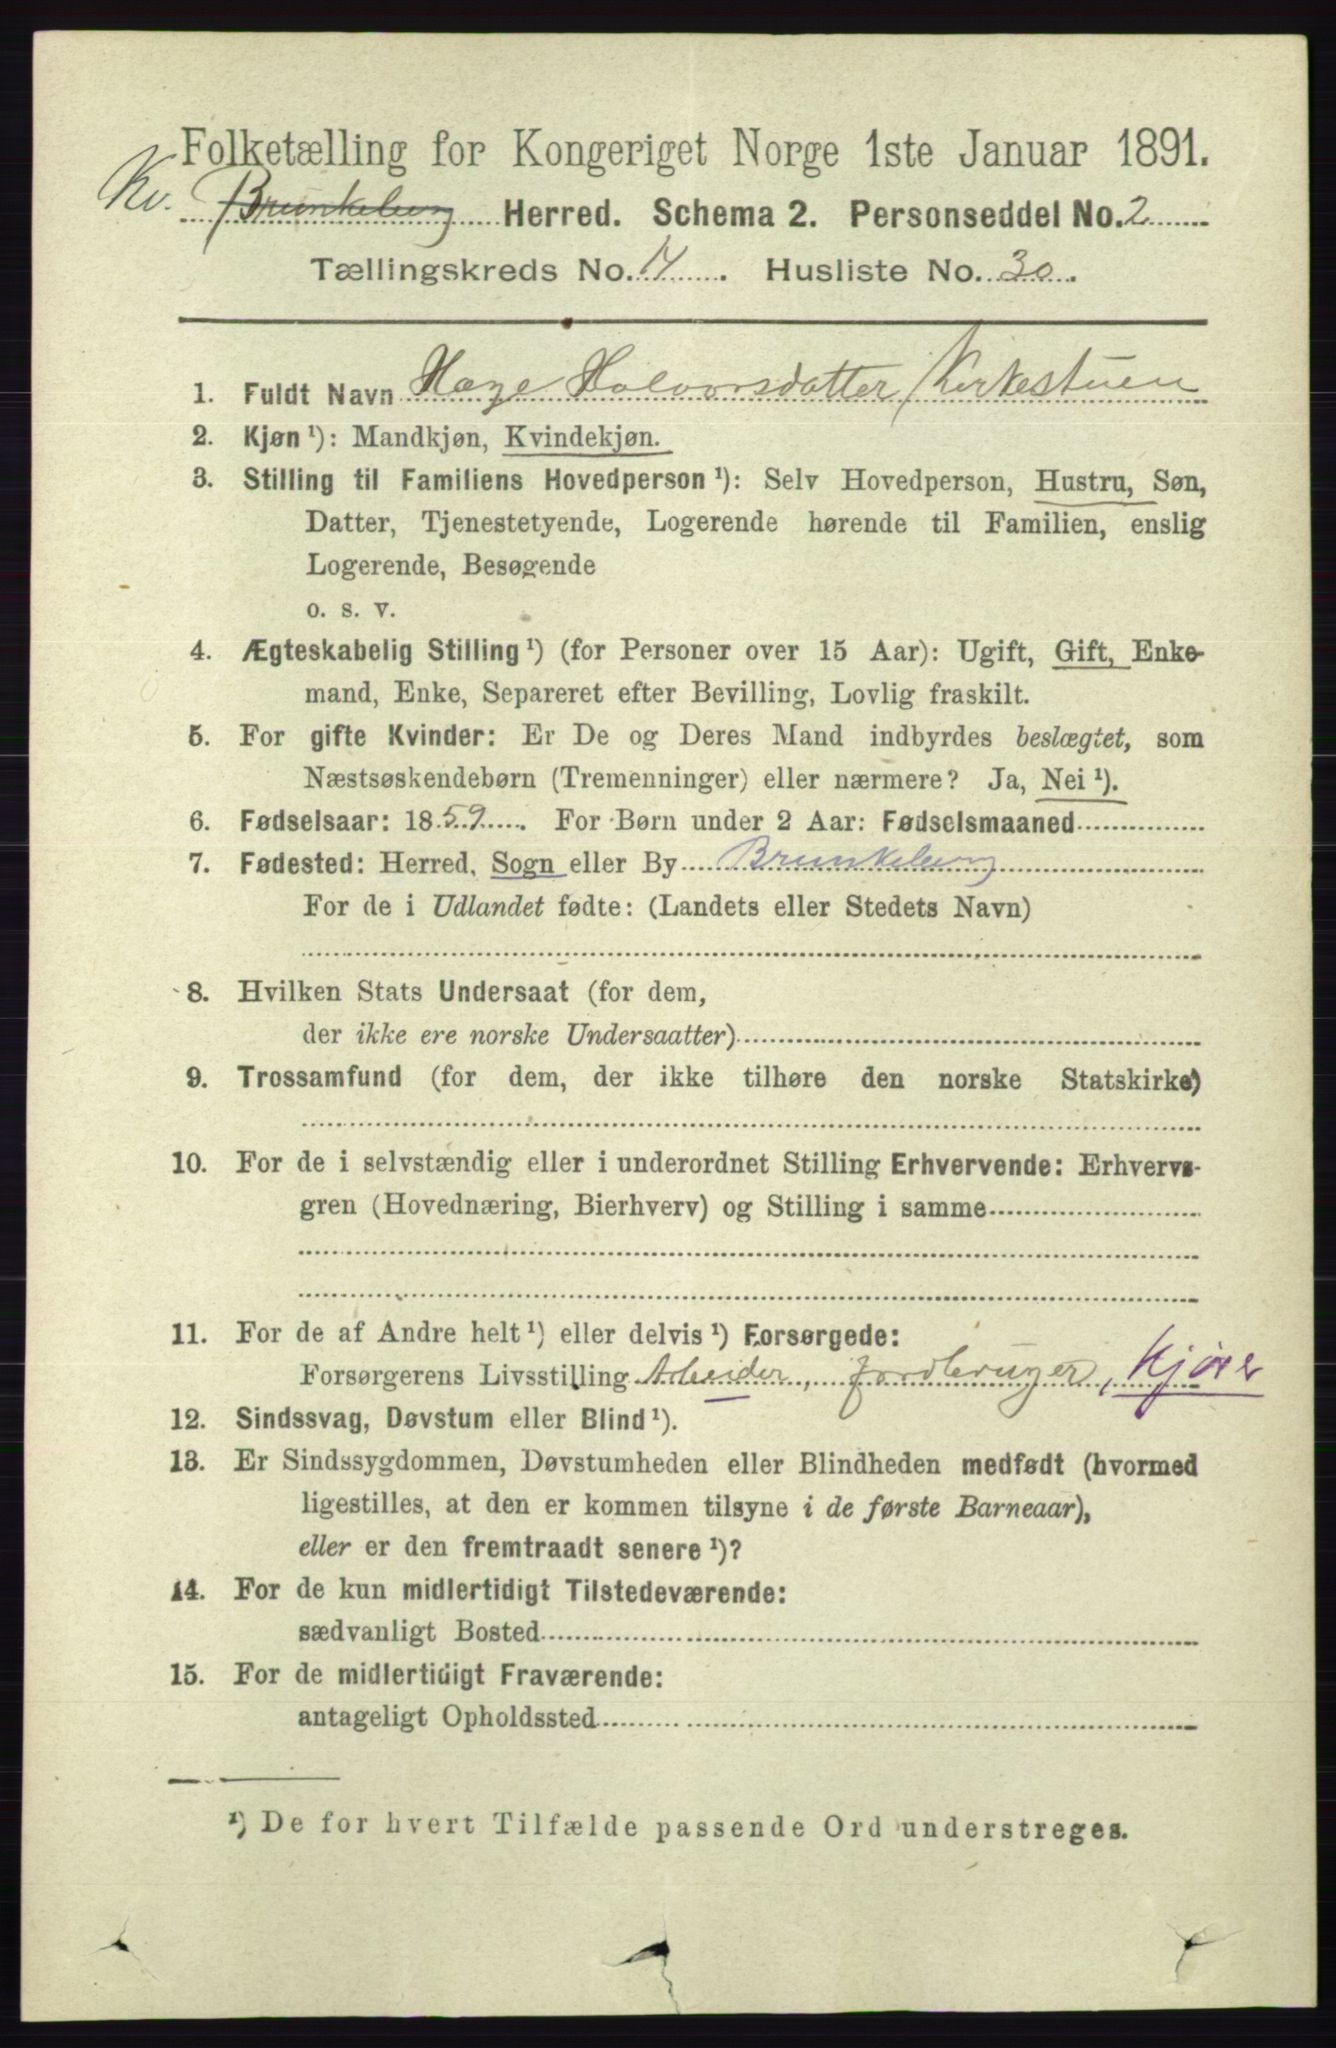 Folketælling for Kongeriget Norge 1ste Januar 1891.
Kv. Brunkeberg Herred. Schema 2. Personseddel No. 2
Tællingskreds No. 14. Husliste No. 30.
1. Fuldt Navn Hage Halvorsdatter Kirkestuen
2. Kjøn ¹): Mandkjøn, Kvindekjøn.
3. Stilling til Familiens Hovedperson ¹): Selv Hovedperson, Hustru, Søn,
Datter, Tjenestetyende, Logerende hørende til Familien, enslig
Logerende, Besøgende
o. s. v.
4. Ægteskabelig Stilling ¹) (for Personer over 15 Aar): Ugift, Gift, Enke-
mand, Enke, Separeret efter Bevilling, Lovlig fraskilt.
5. For gifte Kvinder: Er De og Deres Mand indbyrdes beslægtet, som
Næstsøskendebørn (Tremenninger) eller nærmere? Ja, Nei ¹).
6. Fødselsaar: 1859. For Børn under 2 Aar: Fødselsmaaned
7. Fødested: Herred, Sogn eller By Brunkeberg
For de i Udlandet fødte: (Landets eller Stedets Navn)
8. Hvilken Stats Undersaat (for dem,
der ikke ere norske Undersaatter)
9. Trossamfund (for dem, der ikke tilhøre den norske Statskirke)
10. For de i selvstændig eller i underordnet Stilling Erhvervende: Erhvervs-
gren (Hovednæring, Bierhverv) og Stilling i samme
11. For de af Andre helt ¹) eller delvis ¹) Forsørgede:
Forsørgerens Livsstilling Arbeider, Jordbruger, Kjører
12. Sindssvag, Døvstum eller Blind ¹).
13. Er Sindssygdommen, Døvstumheden eller Blindheden medfødt (hvormed
ligestilles, at den er kommen tilsyne i de første Barneaar),
eller er den fremtraadt senere ¹)?
14. For de kun midlertidigt Tilstedeværende:
sædvanligt Bosted
15. For de midlertidigt Fraværende:
antageligt Opholdssted
¹) De for hvert Tilfælde passende Ord understreges.